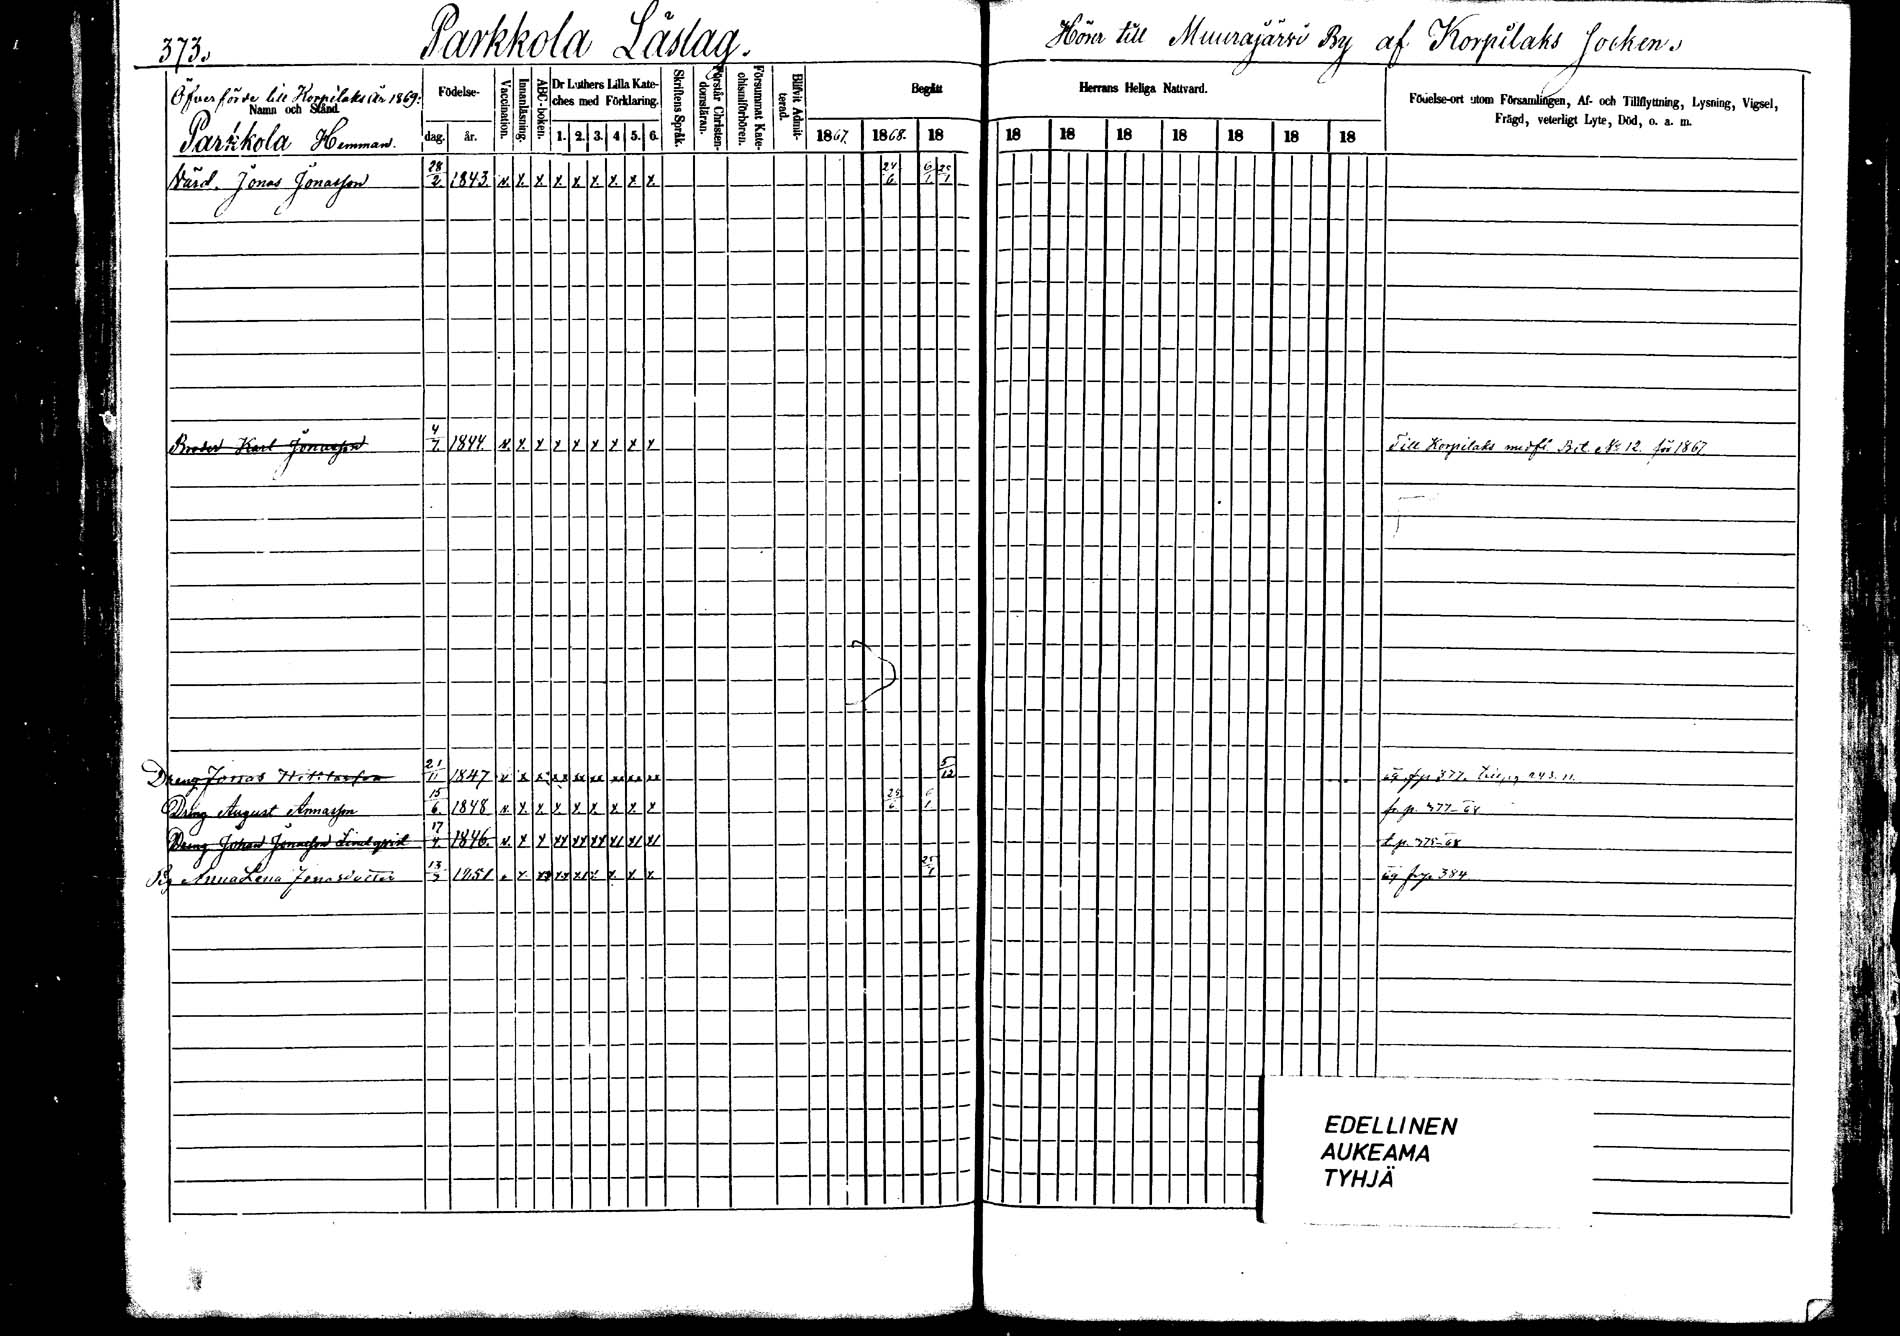 373.
Parkkola Läslag.
Hörer till Muurajärvi By af Korpilaks Socken.
Öfverförde till Korpilaks år 1869.
Namn och Stånd.
Parkkola Hemman.
Födelse-
dag. år.
Vaccination.
Innanläsning.
ABC-boken.
Dr Luthers Lilla Kate-
ches med Förklaring.
1. 2. 3. 4 5. 6.
Skriftens Språk.
Förstår Christen-
domsläran.
Försummat Kate-
chismiförhören.
Blifvit Admit-
terad.
Begått
1867. 1868. 18
Herrans Heliga Nattvard.
18 18 18 18 18 18 18
Födelse-ort utom Församlingen, Af- och Tillflyttning, Lysning, Vigsel,
Frägd, veterligt Lyte, Död, o. a. m.
Värd. Jonas Jonasson 28/2. 1843. v. x x x x x x x x 24/6 6/1 25/1
Broder Karl Jonasson 4/7. 1844. v. x x x x x x x x Till Korpilaks med fl. Bet. No 12. för 1867
Dreng Jonas 21/11 1847 v x x xx xx xx xx xx xx 5/12 fr p 377.
Dräng August Annasson 15/6. 1848 v. x x x x x x x x 24/6 6/1 fr. p. 377-68
Dräng Johan Jonasson Lindqvist 17/4. 1846. v. x x xx xx xx x1 x1 x1 t. p. 375-68
Pig Anna Lena Jonasdotter 13/3 1851 25/1 fr p. 384
EDELLINEN
AUKEAMA
TYHJÄ